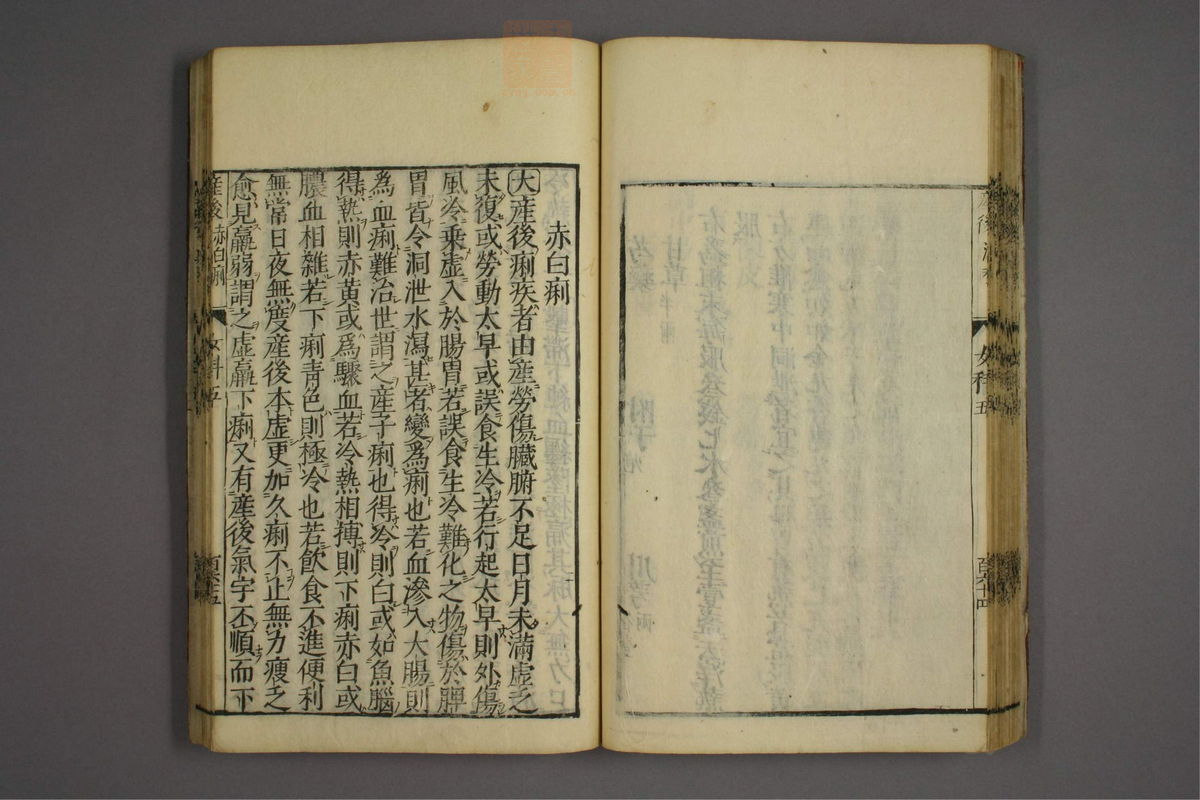 女科
五
百六十四
赤白痢
大産後痢疾者由産勞傷臟腑不足日月未滿虛乏
未復或勞動太早或誤食生冷若行起太早則外傷
風冷乘虛入於腸胃若誤食生冷難化之物傷於脾
胃皆令洞泄水瀉甚者變爲痢也若血滲入大腸則
爲血痢難治世謂之產子痢也得冷則白或如魚腦
得熱則赤黃或爲驟血若冷熱相搏則下痢赤白或
膿血相雜若下痢青色則極冷也若飲食不進便利
無常日夜無度産後本虛更加久痢不止無力瘦乏
愈見羸弱謂之虛羸下痢又有産後氣字不順而下
産後 赤白痢
女科五
百六十五